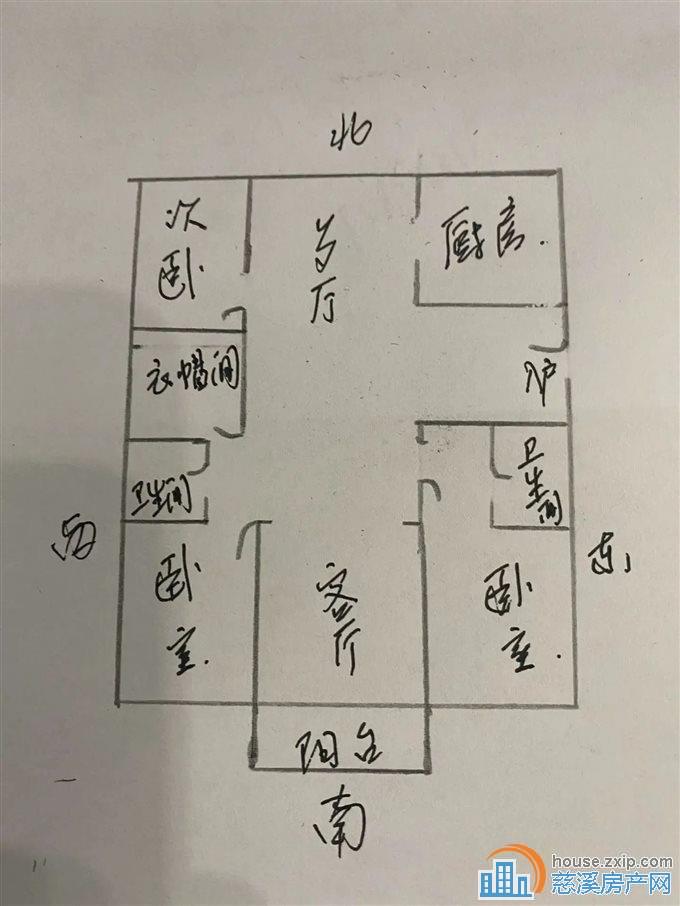 北
次卧
餐厅
厨房.
衣帽间
入户
卫生间
卫生间
西
东
卧室.
客厅
卧室.
阳台
南
house.zxip.com
慈溪房产网